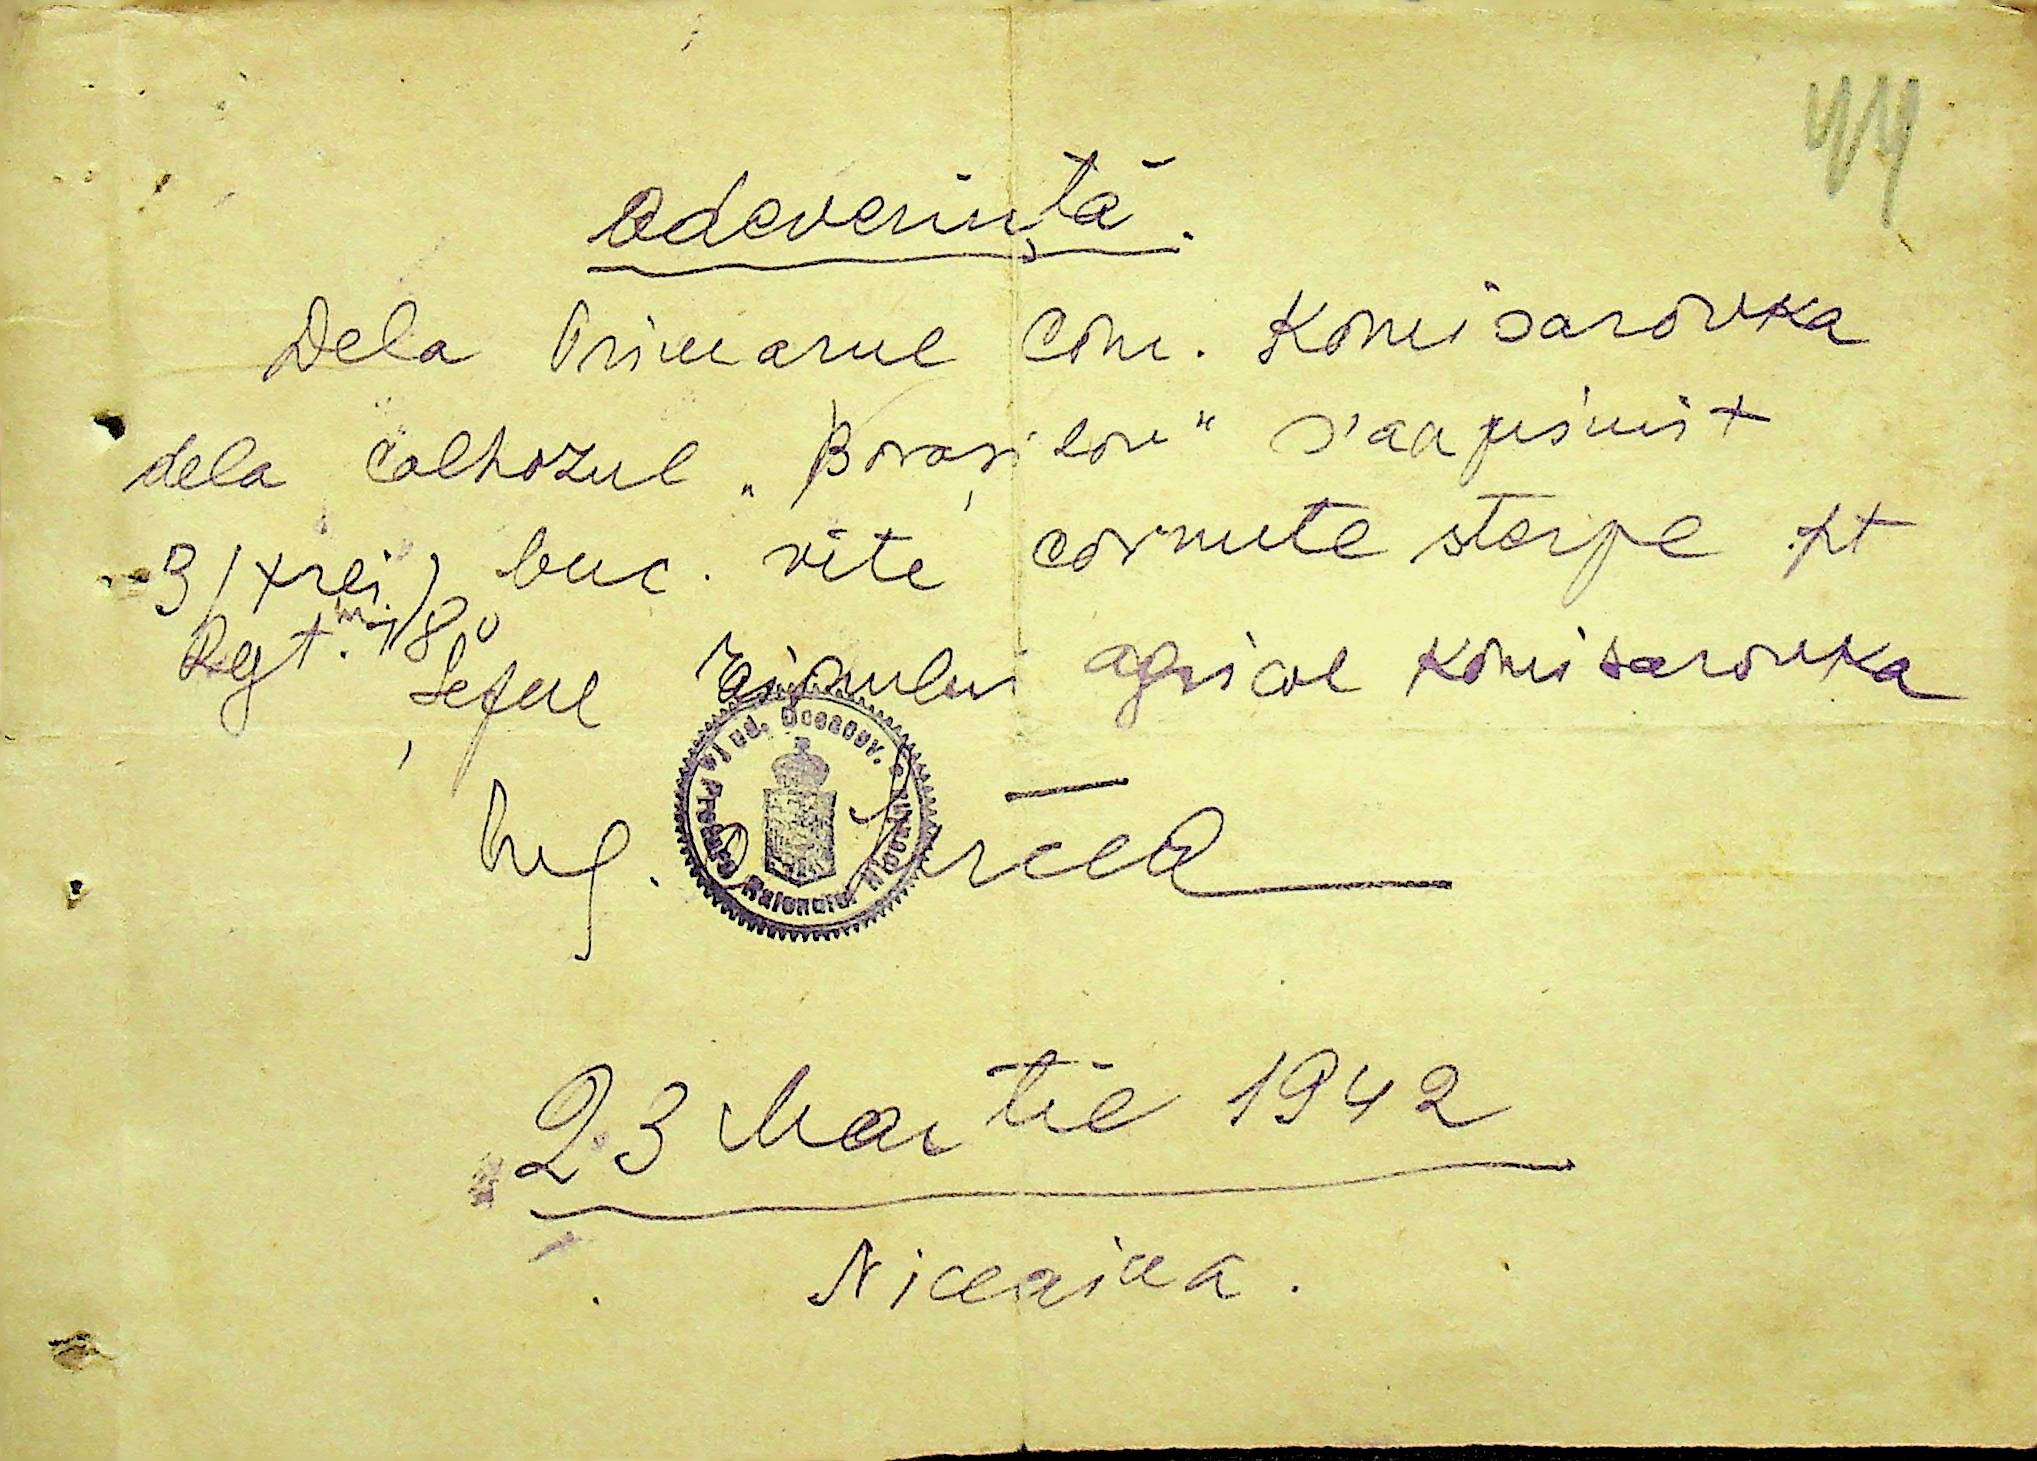 44
Adeverință.
Dela Primarul Com. Komisarovka
dela Colhozul „ " s'a primit
3 (trei) buc. vite cornute sterpe pt
Regt.
Șeful agricol Komisarovka
Ing.
jud. Oceacov.
Pretura Raionului
23 Martie 1942